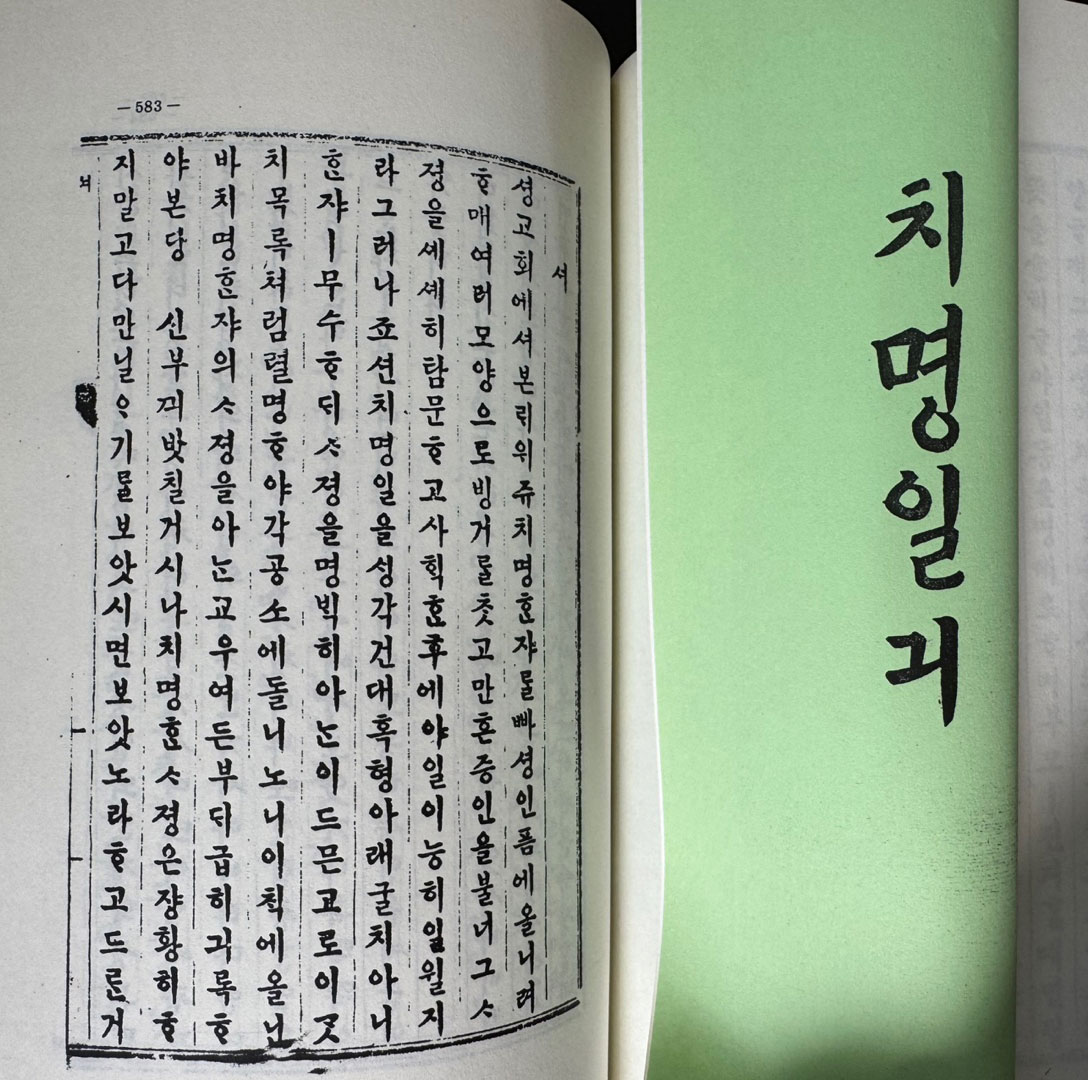 — 583 —
셔
셩고회에셔본ᄅᆡ위쥬치명ᄒᆞᆫ쟈ᄅᆞᆯ빠셩인픔에올니려
ᄒᆞ매여러모양으로빙거ᄅᆞᆯᄎᆞᆺ고만흔증인을불너그ᄉᆞ
졍을셰셰히탐문ᄒᆞ고사ᄒᆡᆨᄒᆞᆫ후에야일이능히일월지
라그러나죠션치명일을ᄉᆡᆼ각건대혹형아래굴치아니
ᄒᆞᆫ쟈ㅣ무수ᄒᆞᄃᆡᄉᆞ졍을명ᄇᆡᆨ히아ᄂᆞᆫ이드믄고로이곳
치목록쳐럼렬명ᄒᆞ야각공소에돌니노니이ᄎᆡᆨ에올닌
바치명ᄒᆞᆫ쟈의ᄉᆞ졍을아ᄂᆞᆫ교우여든부ᄃᆡ급히긔록ᄒᆞ
야본당 신부ᄭᅴ밧칠거시나치명ᄒᆞᆫᄉᆞ졍은쟝황히ᄒᆞ
지말고다만닐ᄋᆞ기ᄅᆞᆯ보앗시면보앗노라ᄒᆞ고드른거
치명일긔